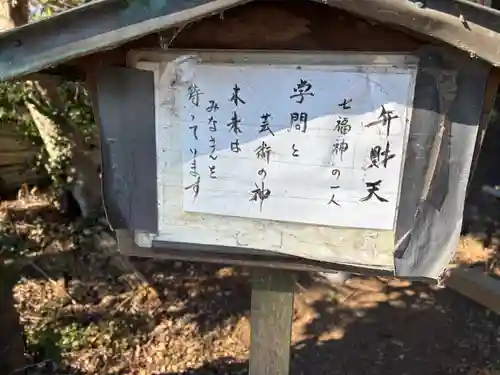 弁財天
七福神の一人
学問と
芸術の神
未来は
みなさんを
待っています